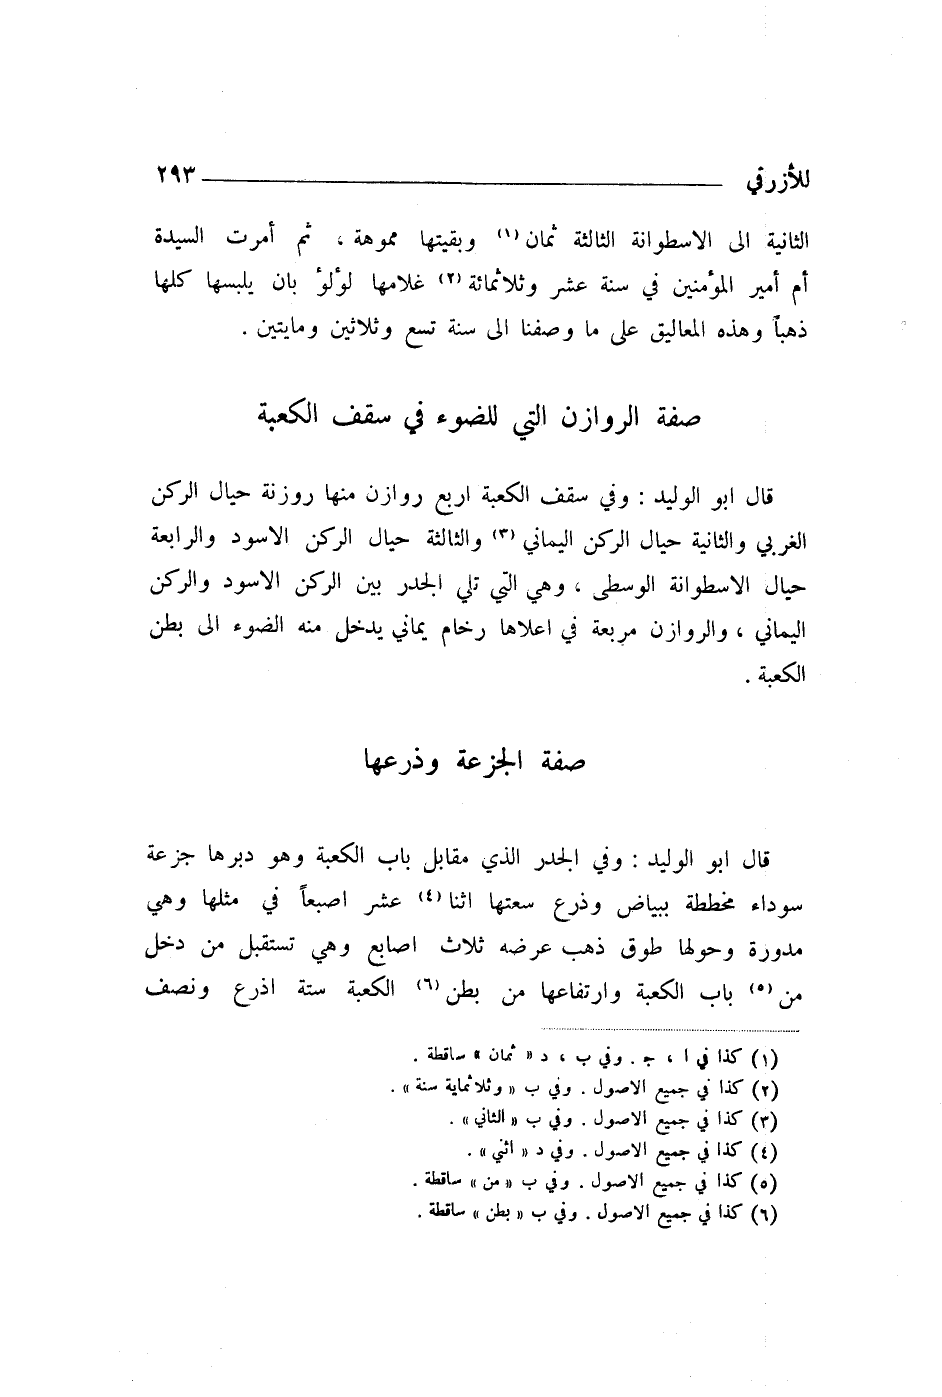 للأزرقي ٢٩٣
الثانية الى الاسطوانة الثالثة ثمان (١) وبقيتها مموهة ، ثم أمرت السيدة
أم أمير المؤمنين في سنة عشر وثلاثمائة (٢) غلامها لؤلؤ بان يلبسها كلها
ذهباً وهذه المعاليق على ما وصفنا الى سنة تسع وثلاثين ومايتين .
صفة الروازن التي للضوء في سقف الكعبة
قال ابو الوليد : وفي سقف الكعبة اربع روازن منها روزنة حيال الركن
الغربي والثانية حيال الركن اليماني (٣) والثالثة حيال الركن الاسود والرابعة
حيال الاسطوانة الوسطى ، وهي التي تلي الجدر بين الركن الاسود والركن
اليماني ، والروازن مربعة في اعلاها رخام يماني يدخل منه الضوء الى بطن
الكعبة .
صفة الجزعة وذرعها
قال ابو الوليد : وفي الجدر الذي مقابل باب الكعبة وهو دبرها جزعة
سوداء مخططة ببياض وذرع سعتها اثنا (٤) عشر اصبعاً في مثلها وهي
مدورة وحولها طوق ذهب عرضه ثلاث اصابع وهي تستقبل من دخل
من (٥) باب الكعبة وارتفاعها من بطن (٦) الكعبة ستة اذرع ونصف
(١) كذا في ا ، ج . وفي ب ، د « ثمان » ساقطة .
(٢) كذا في جميع الاصول . وفي ب « وثلاثماية سنة » .
(٣) كذا في جميع الاصول . وفي ب « الثاني » .
(٤) كذا في جميع الاصول . وفي د « اثني » .
(٥) كذا في جميع الاصول . وفي ب « من » ساقطة .
(٦) كذا في جميع الاصول . وفي ب « بطن » ساقطة .